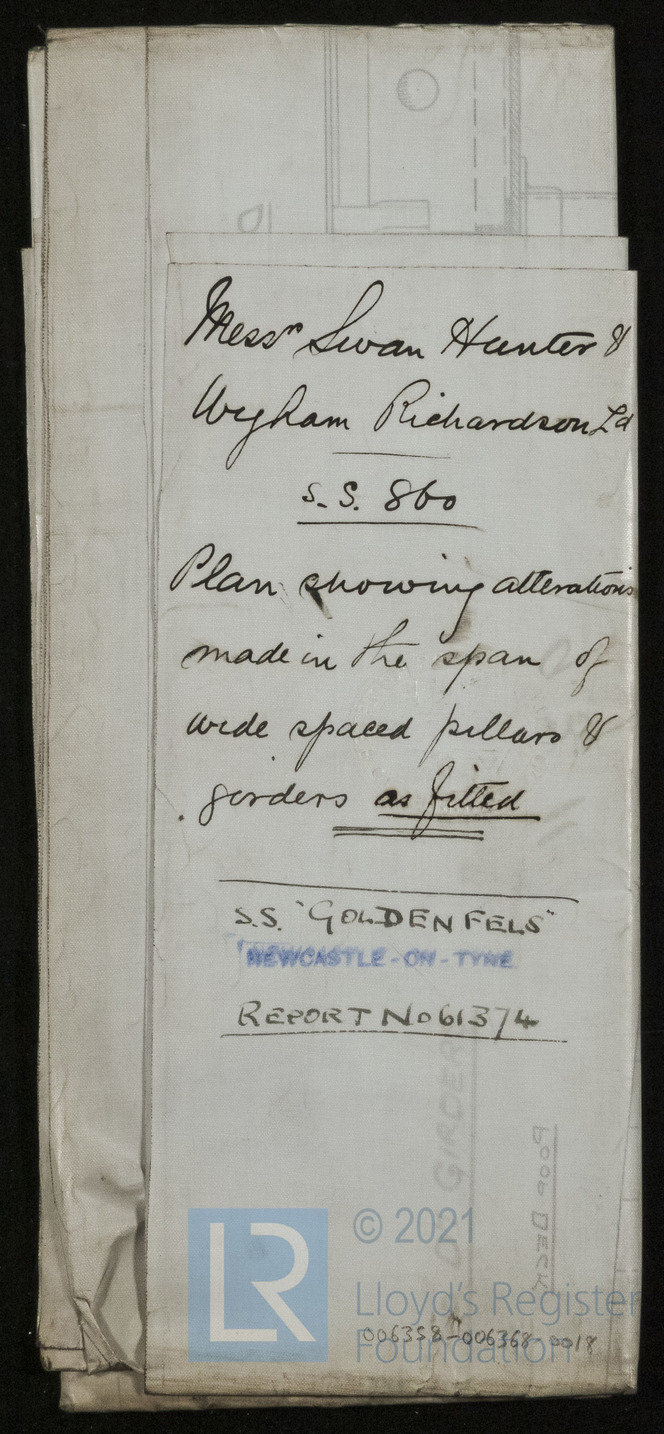 Messrs Swan Hunter &
Wigham Richardson Ld
S.S. 860
Plan showing alterations
made in the span of
wide spaced pillars &
girders as fitted
S.S. "GOLDENFELS"
NEWCASTLE-ON-TYNE
REPORT No 61374
GIRDER
POOP DECK
LR
© 2021
Lloyd's Register
Foundation
006358-006368-0018